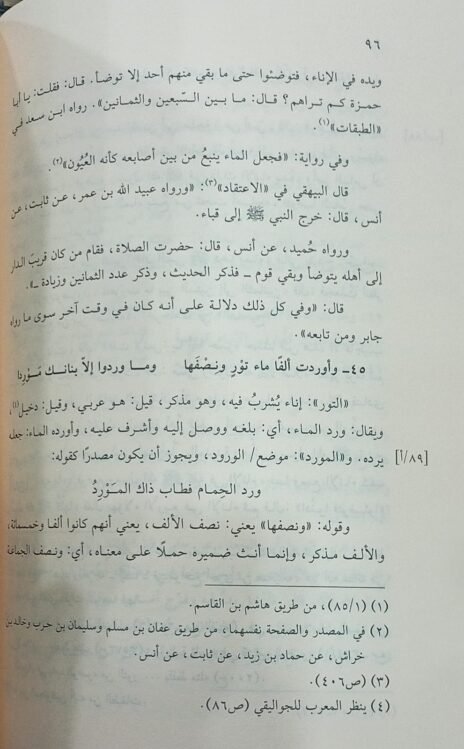 ٩٦
ويده في الإناء، فتوضئوا حتى ما بقي منهم أحد إلا توضأ. قال: فقلت: يا أبا
حمزة كم تراهم؟ قال: ما بين السّبعين والثمانين». رواه ابن سعد في
«الطبقات»(١).
وفي رواية: «فجعل الماء ينبعُ من بين أصابعه كأنه العُيُون»(٢).
قال البيهقي في «الاعتقاد»(٣): «ورواه عبيد الله بن عمر، عن ثابت، عن
أنس، قال: خرج النبي ﷺ إلى قباء.
ورواه حُميد، عن أنس، قال: حضرت الصلاة، فقام من كان قريبَ الدار
إلى أهله يتوضأ وبقي قوم ـ فذكر الحديث، وذكر عدد الثمانين وزيادة ـ».
قال: «وفي كل ذلك دلالة على أنه كان في وقت آخر سوى ما رواه
جابر ومن تابعه».
٤٥ـ وأوردت ألفًا ماء تَوْرٍ ونِصْفَها وما وردوا إلاّ بنانك مَوْرِدا
«التور»: إناء يُشربُ فيه، وهو مذكر، قيل: هو عربي، وقيل: دخيل(٤)،
ويقال: ورد الماء، أي: بلغه ووصل إليه وأشرف عليه، وأورده الماء: جعله
يرده. و«المورد»: موضع/ الورود، ويجوز أن يكون مصدرًا كقوله:
[٨٩/أ]
ورد الحِمام فطاب ذاك المَوْرِدُ
وقوله: «ونصفها» يعني: نصف الألف، يعني أنهم كانوا ألفا وخمسمائة،
والألف مذكر، وإنما أنث ضميره حملًا على معناه، أي: ونصف الجماعة
(١) (٨٥/١)، من طريق هاشم بن القاسم.
(٢) في المصدر والصفحة نفسهما، من طريق عفان بن مسلم وسليمان بن حرب وخالد بن
خراش، عن حماد بن زيد، عن ثابت، عن أنس.
(٣) (ص٤٠٦).
(٤) ينظر المعرب للجواليقي (ص٨٦).